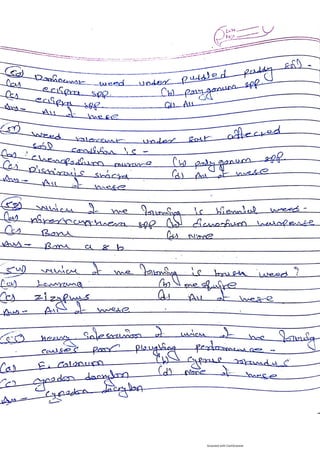 (50) Dominant weed under puddled paddy soil -
(a) eclipta spp (b) polygonum spp
(c) eclipta spp (d) All
Ans - All of these
(51) weed tolerant under salt affected
soil condition is -
(a) chenopodium murale (b) polygonum spp
(c) (d) All of these
Ans - All of these
which of the following is biennial weed -
(a) spp (b)
(c) Both (d) None
Ans - Both a & b
(54) which of the following is bush weed?
(a) Lantana (b)
(c) zizyphus (d) All of these
Ans - All of these
(55) heavy infestation of which of the following
causes poor ploughing performance -
(a) E. Colonum (b) cyprus rotundus
(c) cynodon dactylon (d) None of these
Ans - cynodon dactylon
Scanned with CamScanner